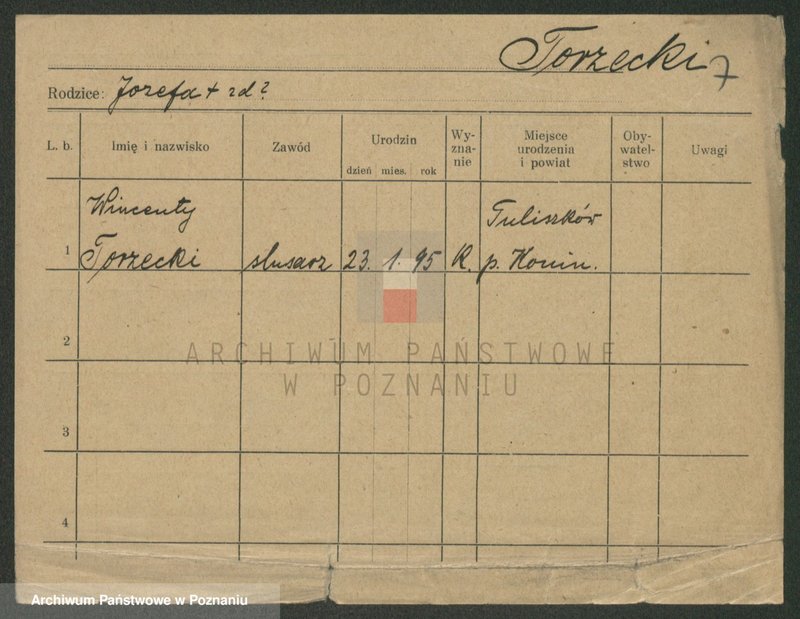 Torzecki 7
Rodzice: Jozefa + zd?
L. b. Imię i nazwisko Zawód Urodzin dzień mies. rok Wyznanie Miejsce urodzenia i powiat Obywatelstwo Uwagi
Wincenty Tuliszków
1 Torzecki slusarz 23. 1. 95 K. p. Konin.
2
ARCHIWUM PAŃSTWOWE
W POZNANIU
3
4
Archiwum Państwowe w Poznaniu